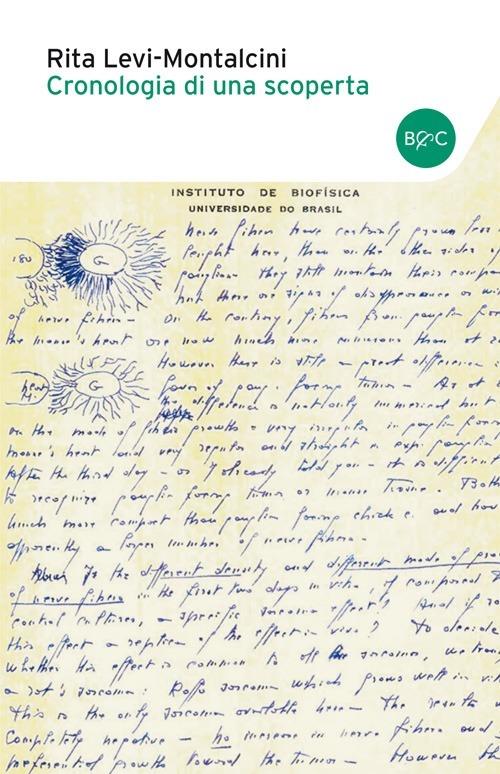 Rita Levi-Montalcini
Cronologia di una scoperta
B&C
INSTITUTO DE BIOFÍSICA
UNIVERSIDADE DO BRASIL
nerve fibers have certainly grown less
lenght here, than on the other sides of
180
G
ganglion - they still maintain their
but there are signs of disappearance or
of nerve fibers - On the contrary, fibers from ganglia
the mouse's heart are now much more numerous than at
However there is still a great difference
heart
G
favor of gang. facing tumor - As at
the difference is not only numerical but
on the mode of fibers growths : very irregular in ganglia
mouse's heart and very regular and straight in exp. ganglia
After the third day - as I already told you - it is difficult
to recognize ganglia facing tumor or mouse tissue. Both
much more compact than ganglia facing chick e. and
apparently a larger number of nerve fibers -
Is the different density and different mode of
of nerve fibers in the first two days in vitro, if compared
control cultures, a specific sarcoma effect? And if so
this effect a replica of the effect in vivo? To decide
whether this effect is common to all the sarcomas, we
a rat's sarcoma: sarcoma which grows well in
This is the only sarcoma available here - The results
completely negative - no increase in nerve fibers and
preferential growth toward the tumor - However